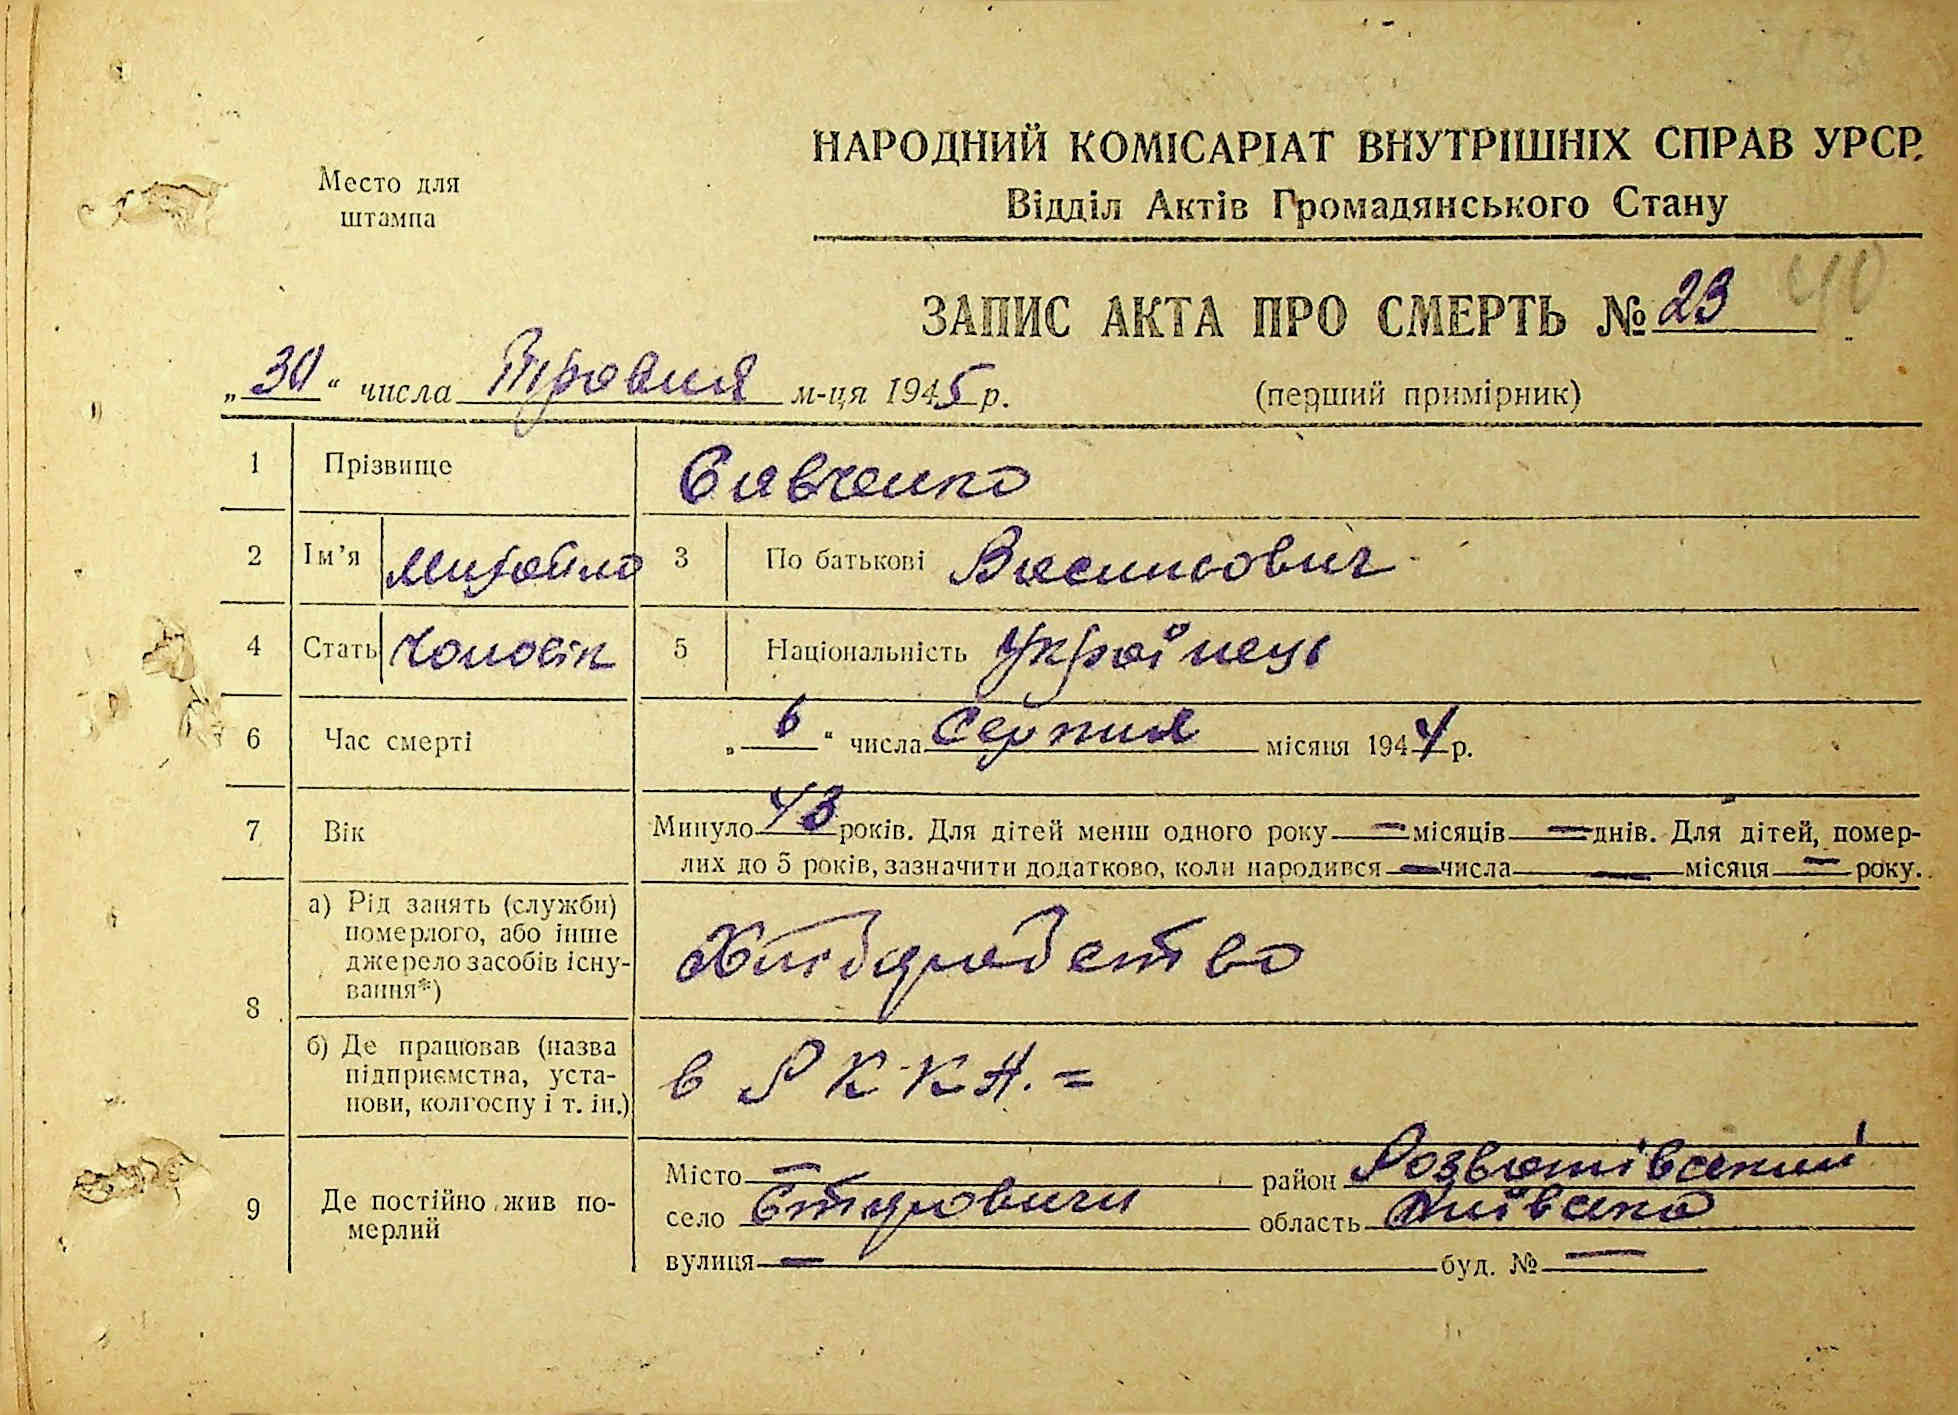 Место для
штампа
НАРОДНИЙ КОМІСАРІАТ ВНУТРІШНІХ СПРАВ УРСР.
Відділ Актів Громадянського Стану
ЗАПИС АКТА ПРО СМЕРТЬ № 23 40
„30“ числа Травня м-ця 1945 р.
(перший примірник)
1 Прізвище Савченко
2 Ім’я Михайло 3 По батькові Васильович
4 Стать Чоловік 5 Національність Українець
6 Час смерті „6“ числа Серпня місяця 1944 р.
7 Вік Минуло 43 років. Для дітей менш одного року — місяців — днів. Для дітей, помер-
лих до 5 років, зазначити додатково, коли народився — числа — місяця — року.
8 а) Рід занять (служби)
померлого, або інше
джерело засобів існу-
вання*)
Хліборобство
б) Де працював (назва
підприємства, уста-
нови, колгоспу і т. ін.)
в РККА. =
9 Де постійно жив по-
мерлий
Місто — район Розважівський
село область Київська
вулиця — буд. № —